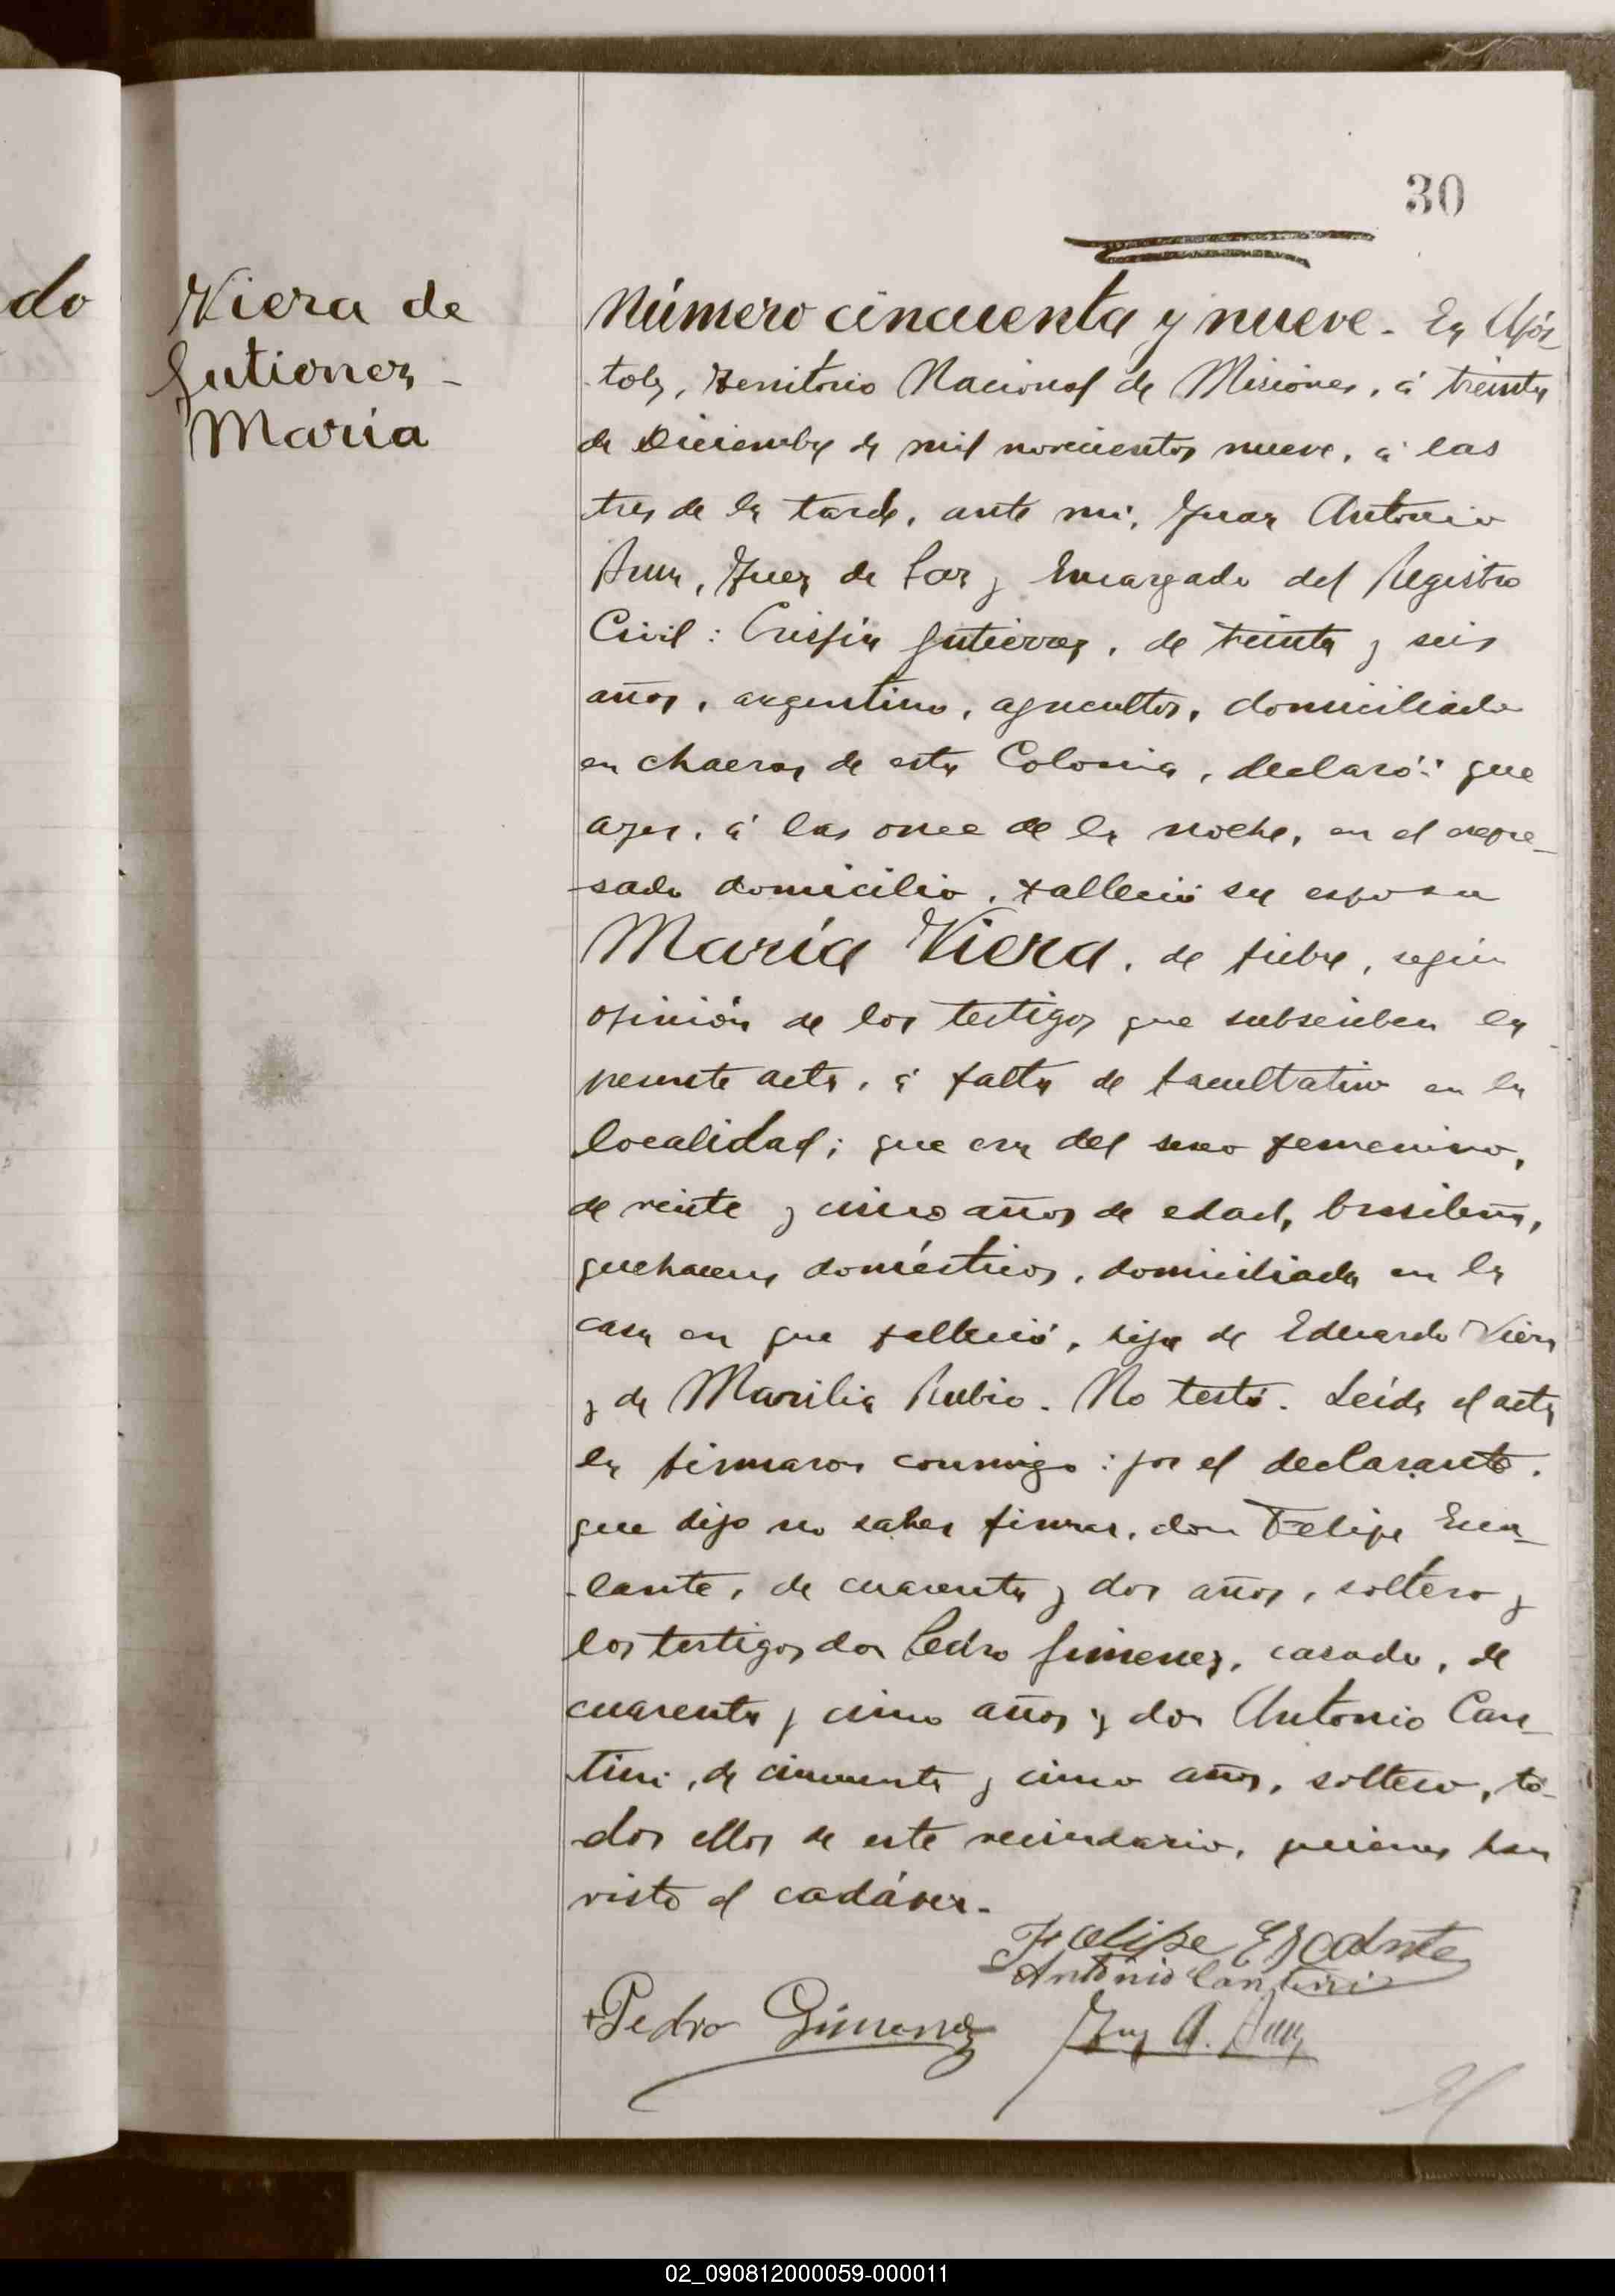 30
do
Viera de
Gutierrez -
María
Número cincuenta y nueve. En Após-
toles, Territorio Nacional de Misiones, á treinta
de Diciembre de mil novecientos nueve, á las
tres de la tarde, ante mi, Juan Antonio
Juez de Paz y Encargado del Registro
Civil: Crispín Gutierrez, de treinta y seis
años, argentino, agricultor, domiciliado
en chacras de esta Colonia, declaró: que
ayer, á las once de la noche, en el expre-
sado domicilio, falleció su esposa
María Viera, de fiebre, según
opinión de los testigos que subscriben la
presente acta, á falta de facultativo en la
localidad; que era del sexo femenino,
de veinte y cinco años de edad, brasileña,
quehaceres domésticos, domiciliada en la
casa en que falleció, hija de Eduardo Viera
y de Marilia Rubio. No testó. Leída el acta
la firmaron conmigo: por el declarante,
que dijo no saber firmar, don Felipe Esca-
lante, de cuarenta y dos años, soltero y
los testigos don Pedro Gimenez, casado, de
cuarenta y cinco años y don Antonio Can-
tini, de cincuenta y cinco años, soltero, to-
dos ellos de este vecindario, quienes han
visto el cadáver.
Felipe Escalante
Antonio Cantini
Pedro Gimenez
Juan A.
02_090812000059-000011